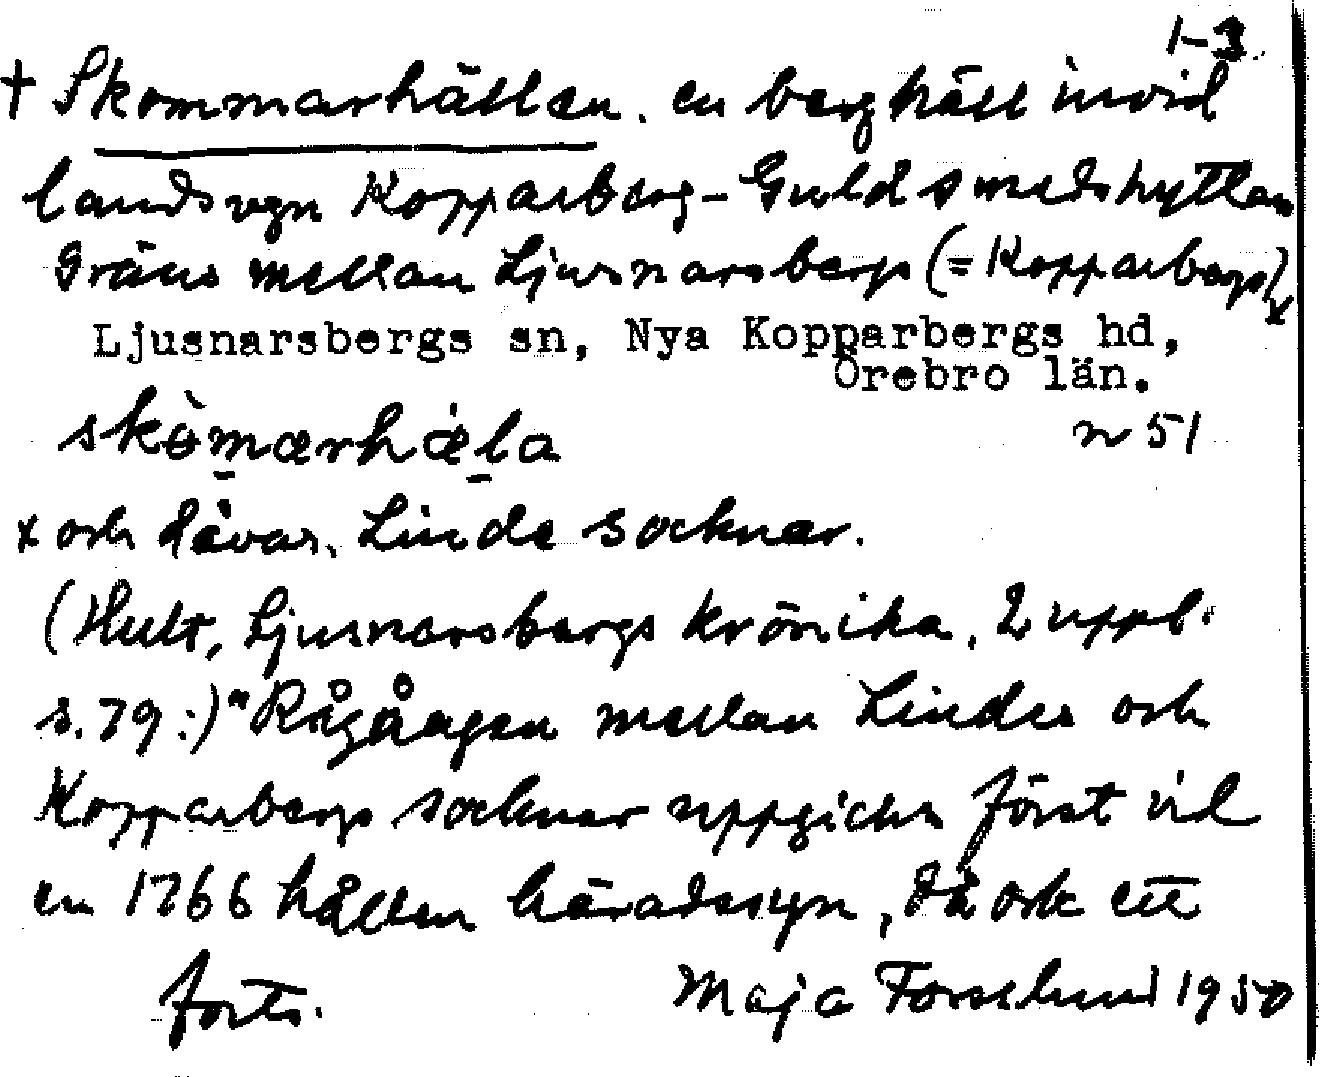 1-3
† Skommarhällen. en berghäll invid
landsvgn Kopparberg - Guldsmedshyttan
Gräns mellan Ljusnarsbergs (= Kopparbergs) x
Ljusnarsbergs sn, Nya Kopparbergs hd,
Örebro län.
skòmærhæla n 51
x och dåvar. Linde socknar.
(Hult, Ljusnarsbergs krönika, 2 uppl.
s. 79 :) "Rågången mellan Lindes och
Kopparbergs socknar uppgicks först vid
en 1766 hållen häradssyn, då ock ett
forts. Maja Forsslund 1950